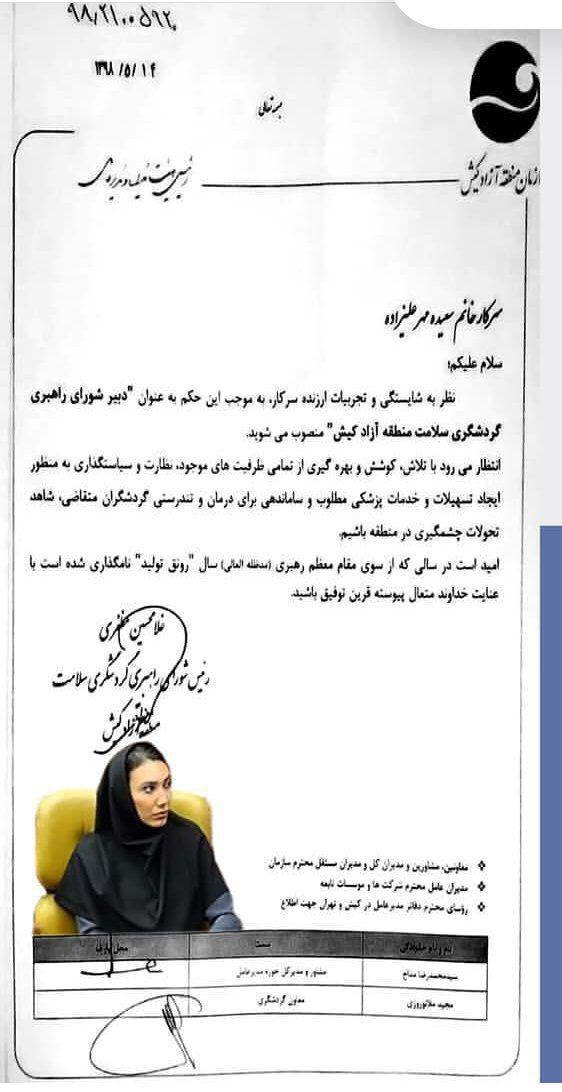 ۹۸,۲۱۰۰۵۹۲
۱۳۹۸/۵/۱۴
بسمه تعالی
سازمان منطقه آزاد کیش
رئیس هیئت مدیره و مدیرعامل
سرکار خانم سعیده مهرعلیزاده
سلام علیکم؛
نظر به شایستگی و تجربیات ارزنده سرکار، به موجب این حکم به عنوان "دبیر شورای راهبری
گردشگری سلامت منطقه آزاد کیش" منصوب می شوید.
انتظار می رود با تلاش، کوشش و بهره گیری از تمامی ظرفیت های موجود، نظارت و سیاستگذاری به منظور
ایجاد تسهیلات و خدمات پزشکی مطلوب و ساماندهی برای درمان و تندرستی گردشگران متقاضی، شاهد
تحولات چشمگیری در منطقه باشیم.
امید است در سالی که از سوی مقام معظم رهبری (مدظله العالی) سال "رونق تولید" نامگذاری شده است با
عنایت خداوند متعال پیوسته قرین توفیق باشید.
غلامحسین مظفری
رئیس شورای راهبری گردشگری سلامت
منطقه آزاد کیش
❖ معاونین، مشاورین و مدیران کل و مدیران مستقل محترم سازمان
❖ مدیران عامل محترم شرکت ها و موسسات تابعه
❖ رؤسای محترم دفاتر مدیرعامل در کیش و تهران جهت اطلاع
نام و نام خانوادگی سمت
سیدمحمدرضا مداح مشاور و مدیرکل حوزه مدیرعامل
مجید ملانوروزی معاون گردشگری